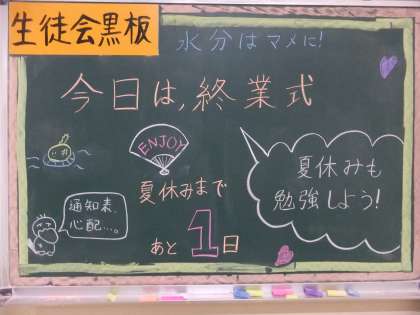 生徒会黒板
水分はマメに!
今日は,終業式
ENJOY
夏休みまで
あと1日
夏休みも
勉強しよう!
通知表、
心配…。